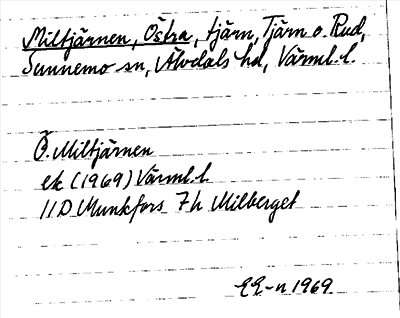 Miltjärnen, Östra, tjärn, Tjärn o. Rud,
Sunnemo sn, Älvdals hd, Värml. l.
Ö. Miltjärnen
ek (1969) Värml. l
11D Munkfors 7h Milberget
E.E.-n 1969.